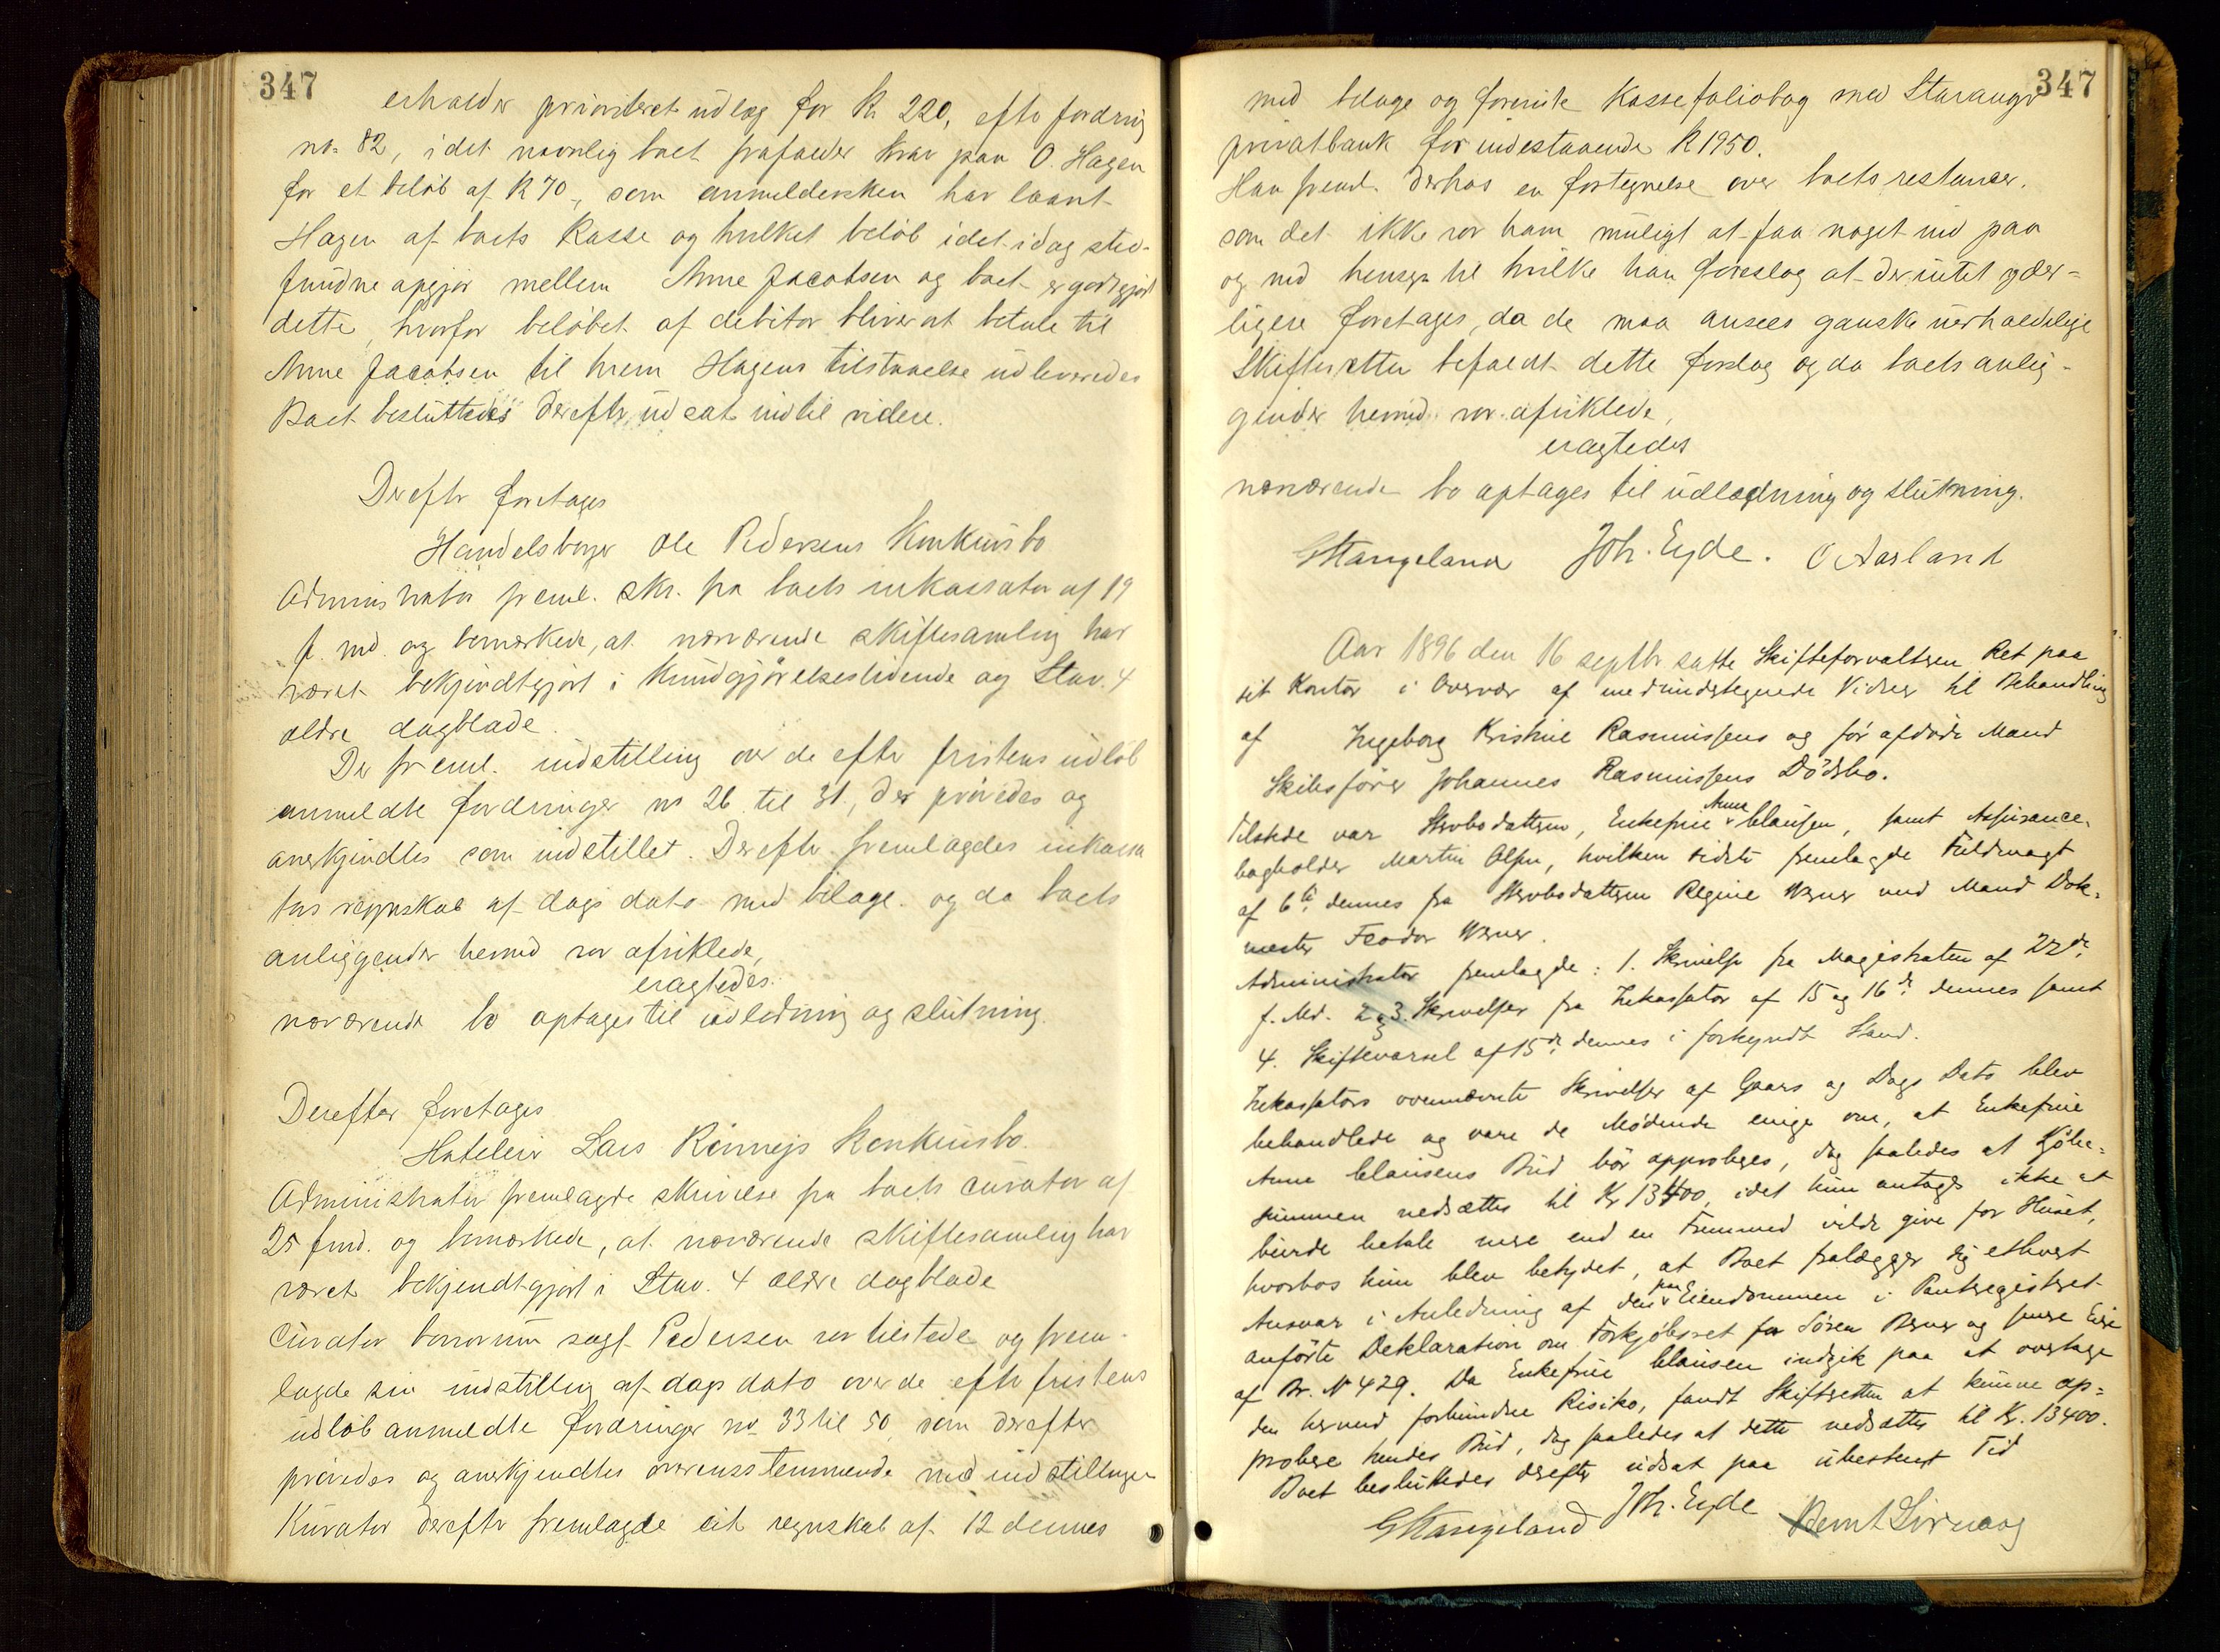 347
erholder prioriteret udlæg for Kr 220, efter fordring
no. 82, idet navnlig boet frafalder krav paa O. Hagen
for et beløb af K 70,, som anmeldersken har laant
Hagen af boets Kasse og hvilket beløb i det idag sted-
fundne opgjør mellem Anne Jacobsen og boet er godtgjort
dette, hvorfor beløbet af debitor bliver at betale til
Anne Jacobsen til hvem Hagens tilstaaelse udleveredes
Boet besluttedes derefter udsat indtil videre.
Derefter foretages
Handelsborger Ole Pedersens Konkursbo
Administrator freml. skr. fra boets inkassator af 19
f. md. og bemærkede, at nærværende skiftesamling har
været bekjendtgjort i Kundgjørelsestidende og Stav. 4
ældre dagblade.
Der freml. indstilling over de efter fristens udløb
anmeldte fordringer no 26 til 31, der prøvedes og
anerkjendtes som indstillet. Derefter fremlagdes inkassa
tors regnskab af dags dato med bilage. og da boets
anliggender hermed var afviklede,
eragtedes:
nærværende bo optages til udlodning og slutning.
Derefter foretages
Hoteleier Lars Rönnejs Konkursbo.
Administrator fremlagde skrivelse fra boets curator af
25 f md. og bemærkede, at nærværende skiftesamling har
været bekjendtgjort i Stav. 4 ældre dagblade
Curator bonorum sagf. Pedersen var tilstede og frem-
lagde sin indstilling af dags dato over de efter fristens
udløb anmeldte fordringer no 33 til 50, som derefter
prøvedes og anerkjendtes overensstemmende med indstillingen
Kurator derefter fremlagde sit regnskab af 12 dennes
347
med bilage og forevist Kassefoliobog med Stavanger
privatbank for indestaaende K 1950.
Han freml. derhos en fortegnelse over boets restancer.
som det ikke var ham muligt at faa noget ind paa
og med hensyn til hvilke han foreslog at der intet yder-
ligere foretages, da de maa ansees ganske uerholdelige
Skifteretten bifaldt dette forslag og da boets anlig-
gender hermed var afviklede,
eragtedes
nærværende bo optages til udlodning og slutning.
G Stangeland Joh. Eyde. O Aasland
Aar 1896 den 16 septbr satte Skifteforvalteren Ret paa
sit Kontor i Overvær af medundertegnede Vidner til Behandling
af Ingeborg Kristine Rasmussens og før afdøde Mand
Skibsfører Johannes Rasmussens Dödsbo.
Tilstede var Stervbodatteren, Enkefrue Anna Clausen, samt Assurance-
bogholder Martin Olsen, hvilken sidste fremlagde Fuldmagt
af 6te dennes fra Stervbodatteren Regine Werner med Mand Dok-
mester Feodor Werner.
Administrator fremlagde: 1. Skrivelse fra Magistraten af 22de
f. Md. 2 og 3. Skrivelser fra Inkassator af 15 og 16de dennes samt
4. Skiftevarsel af 15de dennes i forkyndt Stand.
Inkassators ovennævnte Skrivelser af Gaars og Dags Dato blev
behandlede og vare de Mødende enige om, at Enkefrue
Anna Clausens Bud bör approberes, dog saaledes at Kjøbe-
summen nedsættes til Kr 13400, idet hun antages ikke at
burde betale mere end en Fremmed vilde give for Huset,
hvorhos hun blev betydet, at Boet fralægger sig ethvert
Ansvar i Anledning af den paa Eiendommen i Pantregistret
anförte Deklaration om Forkjøbsret for Sören Berner og senere Eiere
af Br. N 429. Da Enkefrue Clausen indgik paa at overtage
den herved forbundne Risiko, fandt Skifteretten at kunne ap-
probere hendes Bud, dog saaledes at dette nedsættes til Kr. 13400.
Boet besluttedes derefter udsat paa ubestemt Tid
G Stangeland Joh. Eyde Bernt Sirnæs